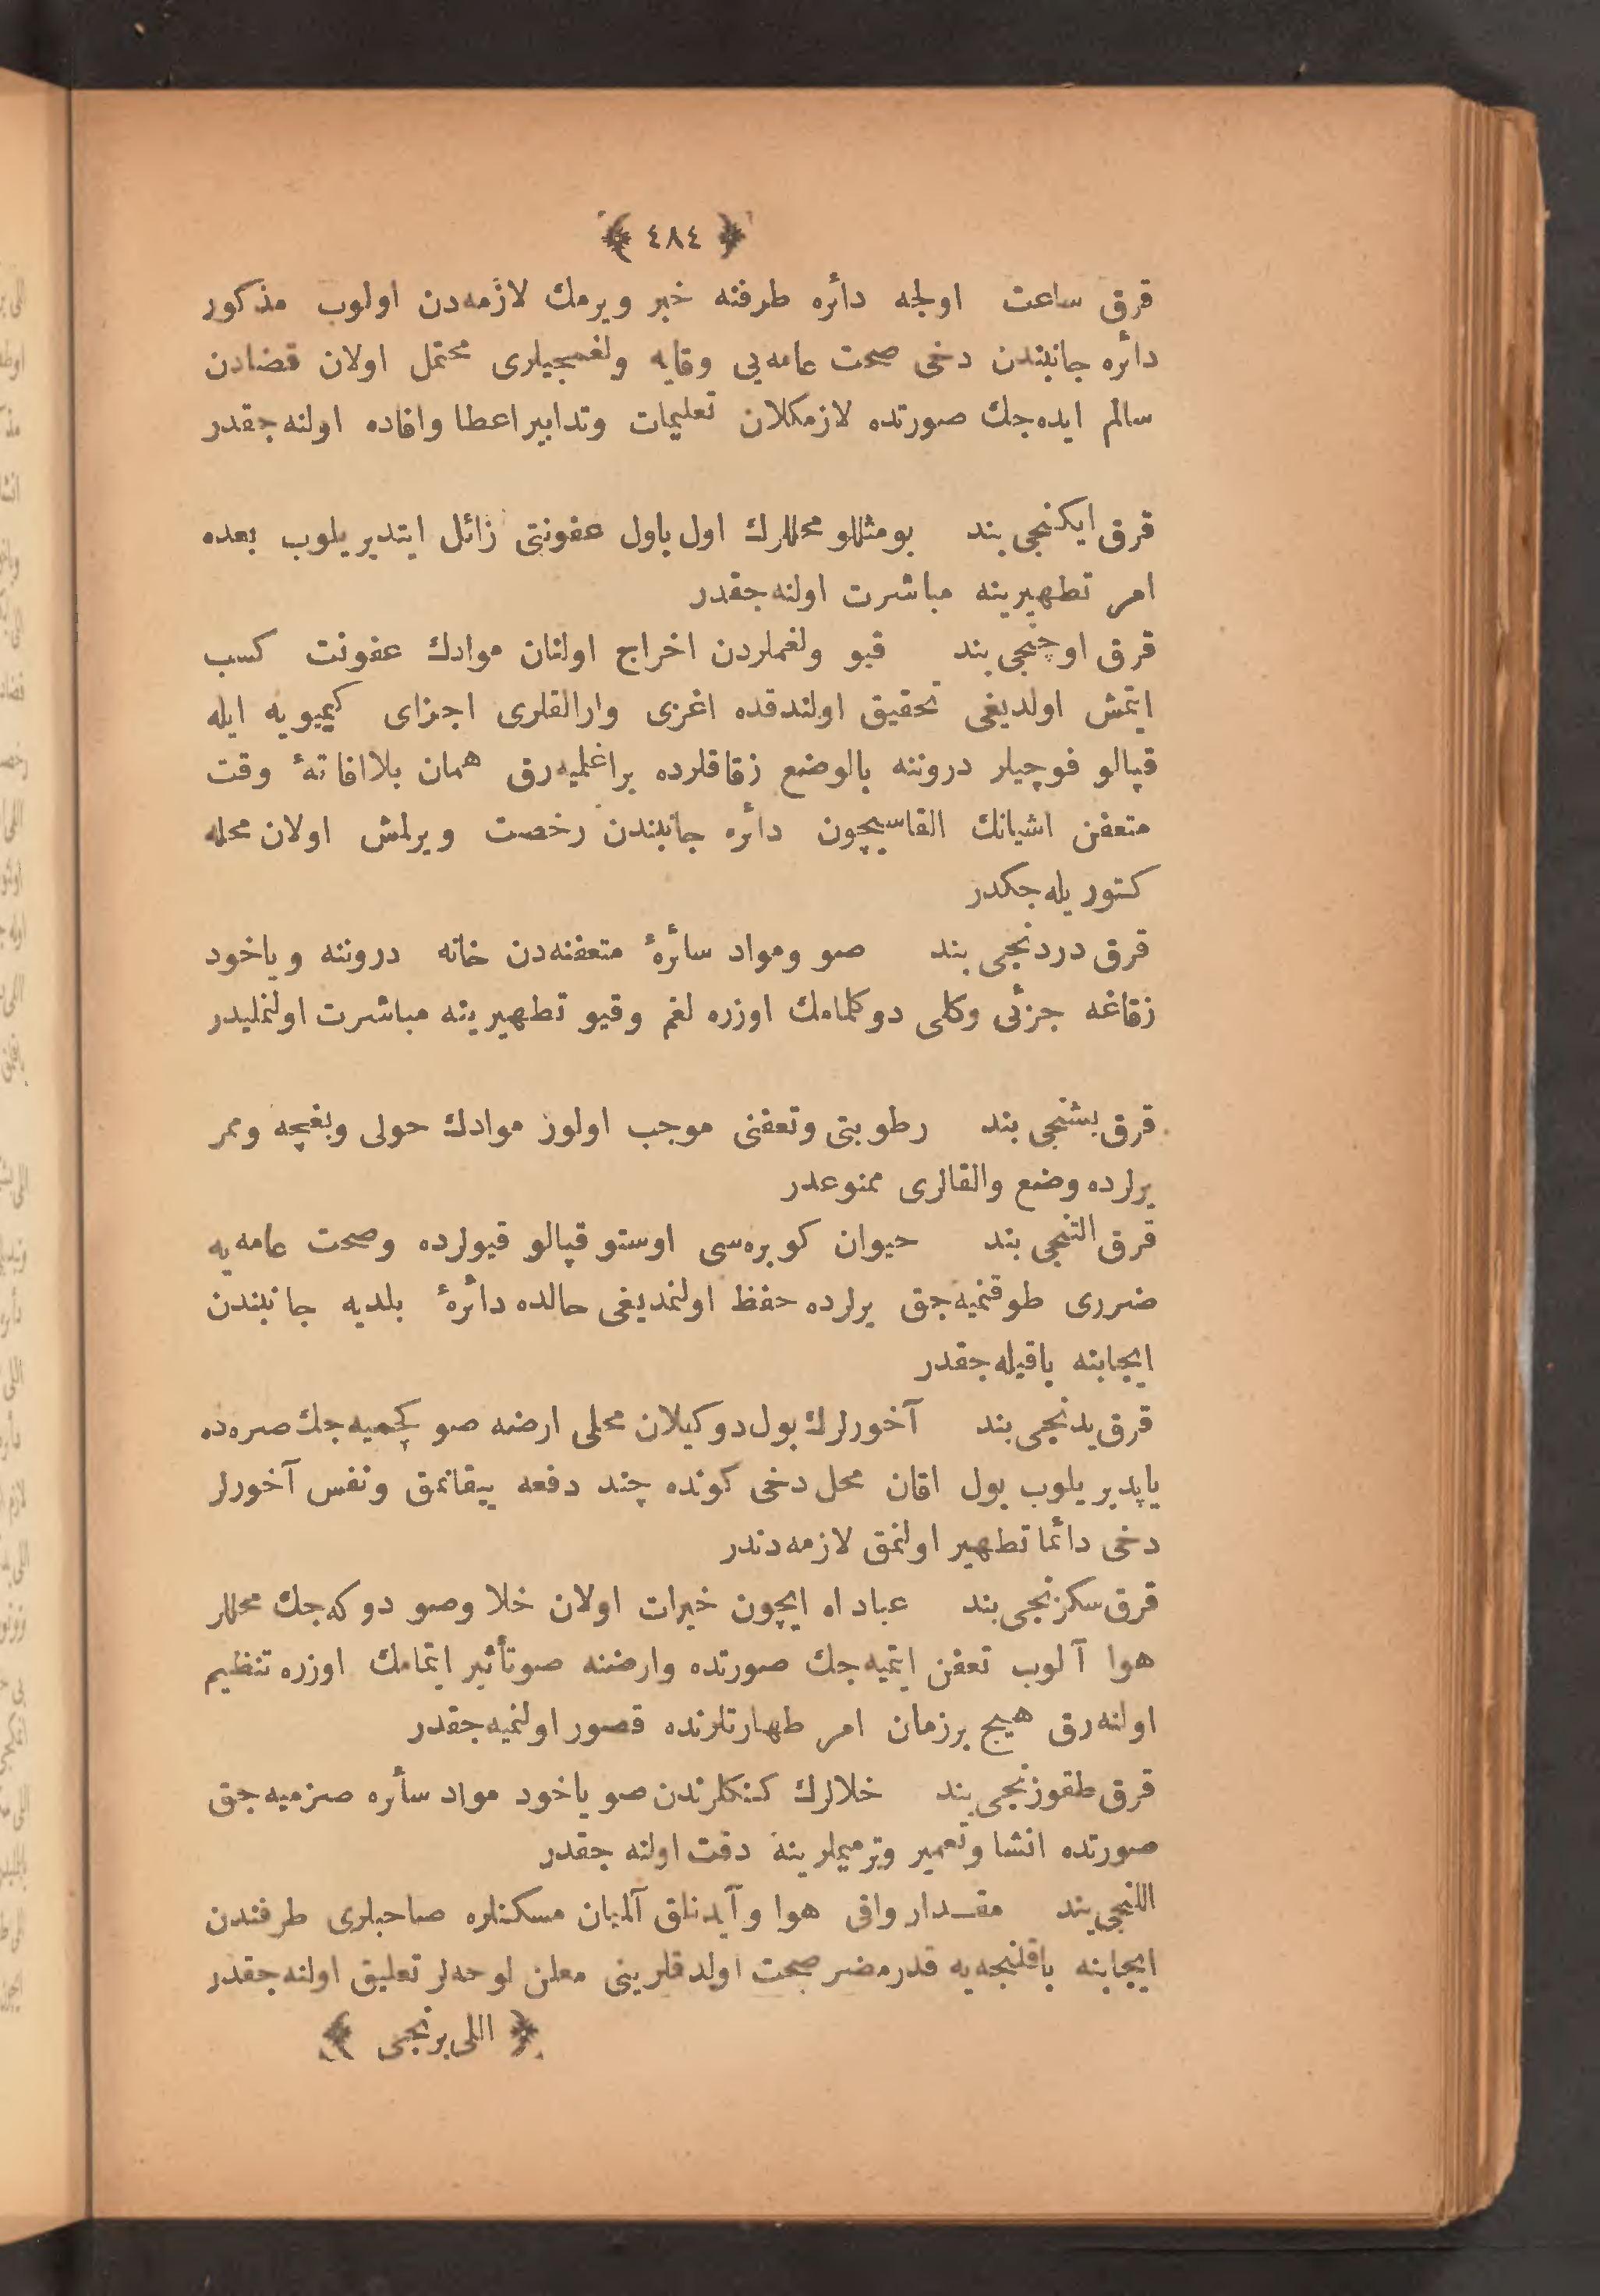 ﴿ ٤٨٤ ﴾
قرق ساعت اولجه دائره طرفنه خبر ويرمك لازمه‌دن اولوب مذكور
دائره جانبندن دخى صحت عامه‌يى وقايه ولغمجيلرى محتمل اولان قضادن
سالم ايده‌جك صورتده لازمكلان تعليمات وتدابير اعطا وافاده اولنه‌جقدر
قرق ايكنجى بند بومثللو محللرك اول باول عفونتى زائل ايتديريلوب بعده
امر تطهيرينه مباشرت اولنه‌جقدر
قرق اوچنجى بند قيو ولغملردن اخراج اولنان موادك عفونت كسب
ايتمش اولديغى تحقيق اولندقده اغزى وارالقلرى اجزاى كيميويه ايله
قپالو فوچيلر دروننه بالوضع زقاقلرده براغلميه‌رق همان بلاافاتۀ وقت
متعفن اشيانك القاسيچون دائره جانبندن رخصت ويرلمش اولان محله
كتوريله‌جكدر
قرق دردنجى بند صو ومواد سائرۀ متعفنه‌دن خانه دروننه وياخود
زقاغه جزئى وكلى دوكلمامك اوزره لغم وقيو تطهيرينه مباشرت اولنمليدر
قرق بشنجى بند رطوبتى وتعفنى موجب اولور موادك حولى وبغچه وممر
يرلرده وضع والقالرى ممنوعدر
قرق التنجى بند حيوان كوبره‌سى اوستو قپالو قيولرده وصحت عامه‌يه
ضررى طوقنميه‌جق يرلرده حفظ اولنمديغى حالده دائرۀ بلديه جانبندن
ايجابنه باقيله‌جقدر
قرق يدنجى بند آخورلرك بول دوكيلان محلى ارضه صو كچميه‌جك صره‌ده
ياپديريلوب بول اقان محل دخى كونده چند دفعه ييقانمق ونفس آخورلر
دخى دائما تطهير اولنمق لازمه‌دندر
قرق سكزنجى بند عباد اه ايچون خيرات اولان خلا وصو دوكه‌جك محللر
هوا آلوب تعفن ايتميه‌جك صورتده وارضنه صو تأثير ايتمامك اوزره تنظيم
اولنه‌رق هيچ برزمان امر طهارتلرنده قصور اولنميه‌جقدر
قرق طقوزنجى بند خلالرك كنكلرندن صو ياخود مواد سائره صزميه‌جق
صورتده انشا وتعمير وترميملرينه دقت اولنه جقدر
اللنجى بند مقــدار وافى هوا وآيدنلق آلميان مسكنلره صاحبلرى طرفندن
ايجابنه باقلنجه‌يه قدر مضر صحت اولدقلرينى معلن لوحه‌لر تعليق اولنه‌جقدر
﴿ اللى برنجى ﴾